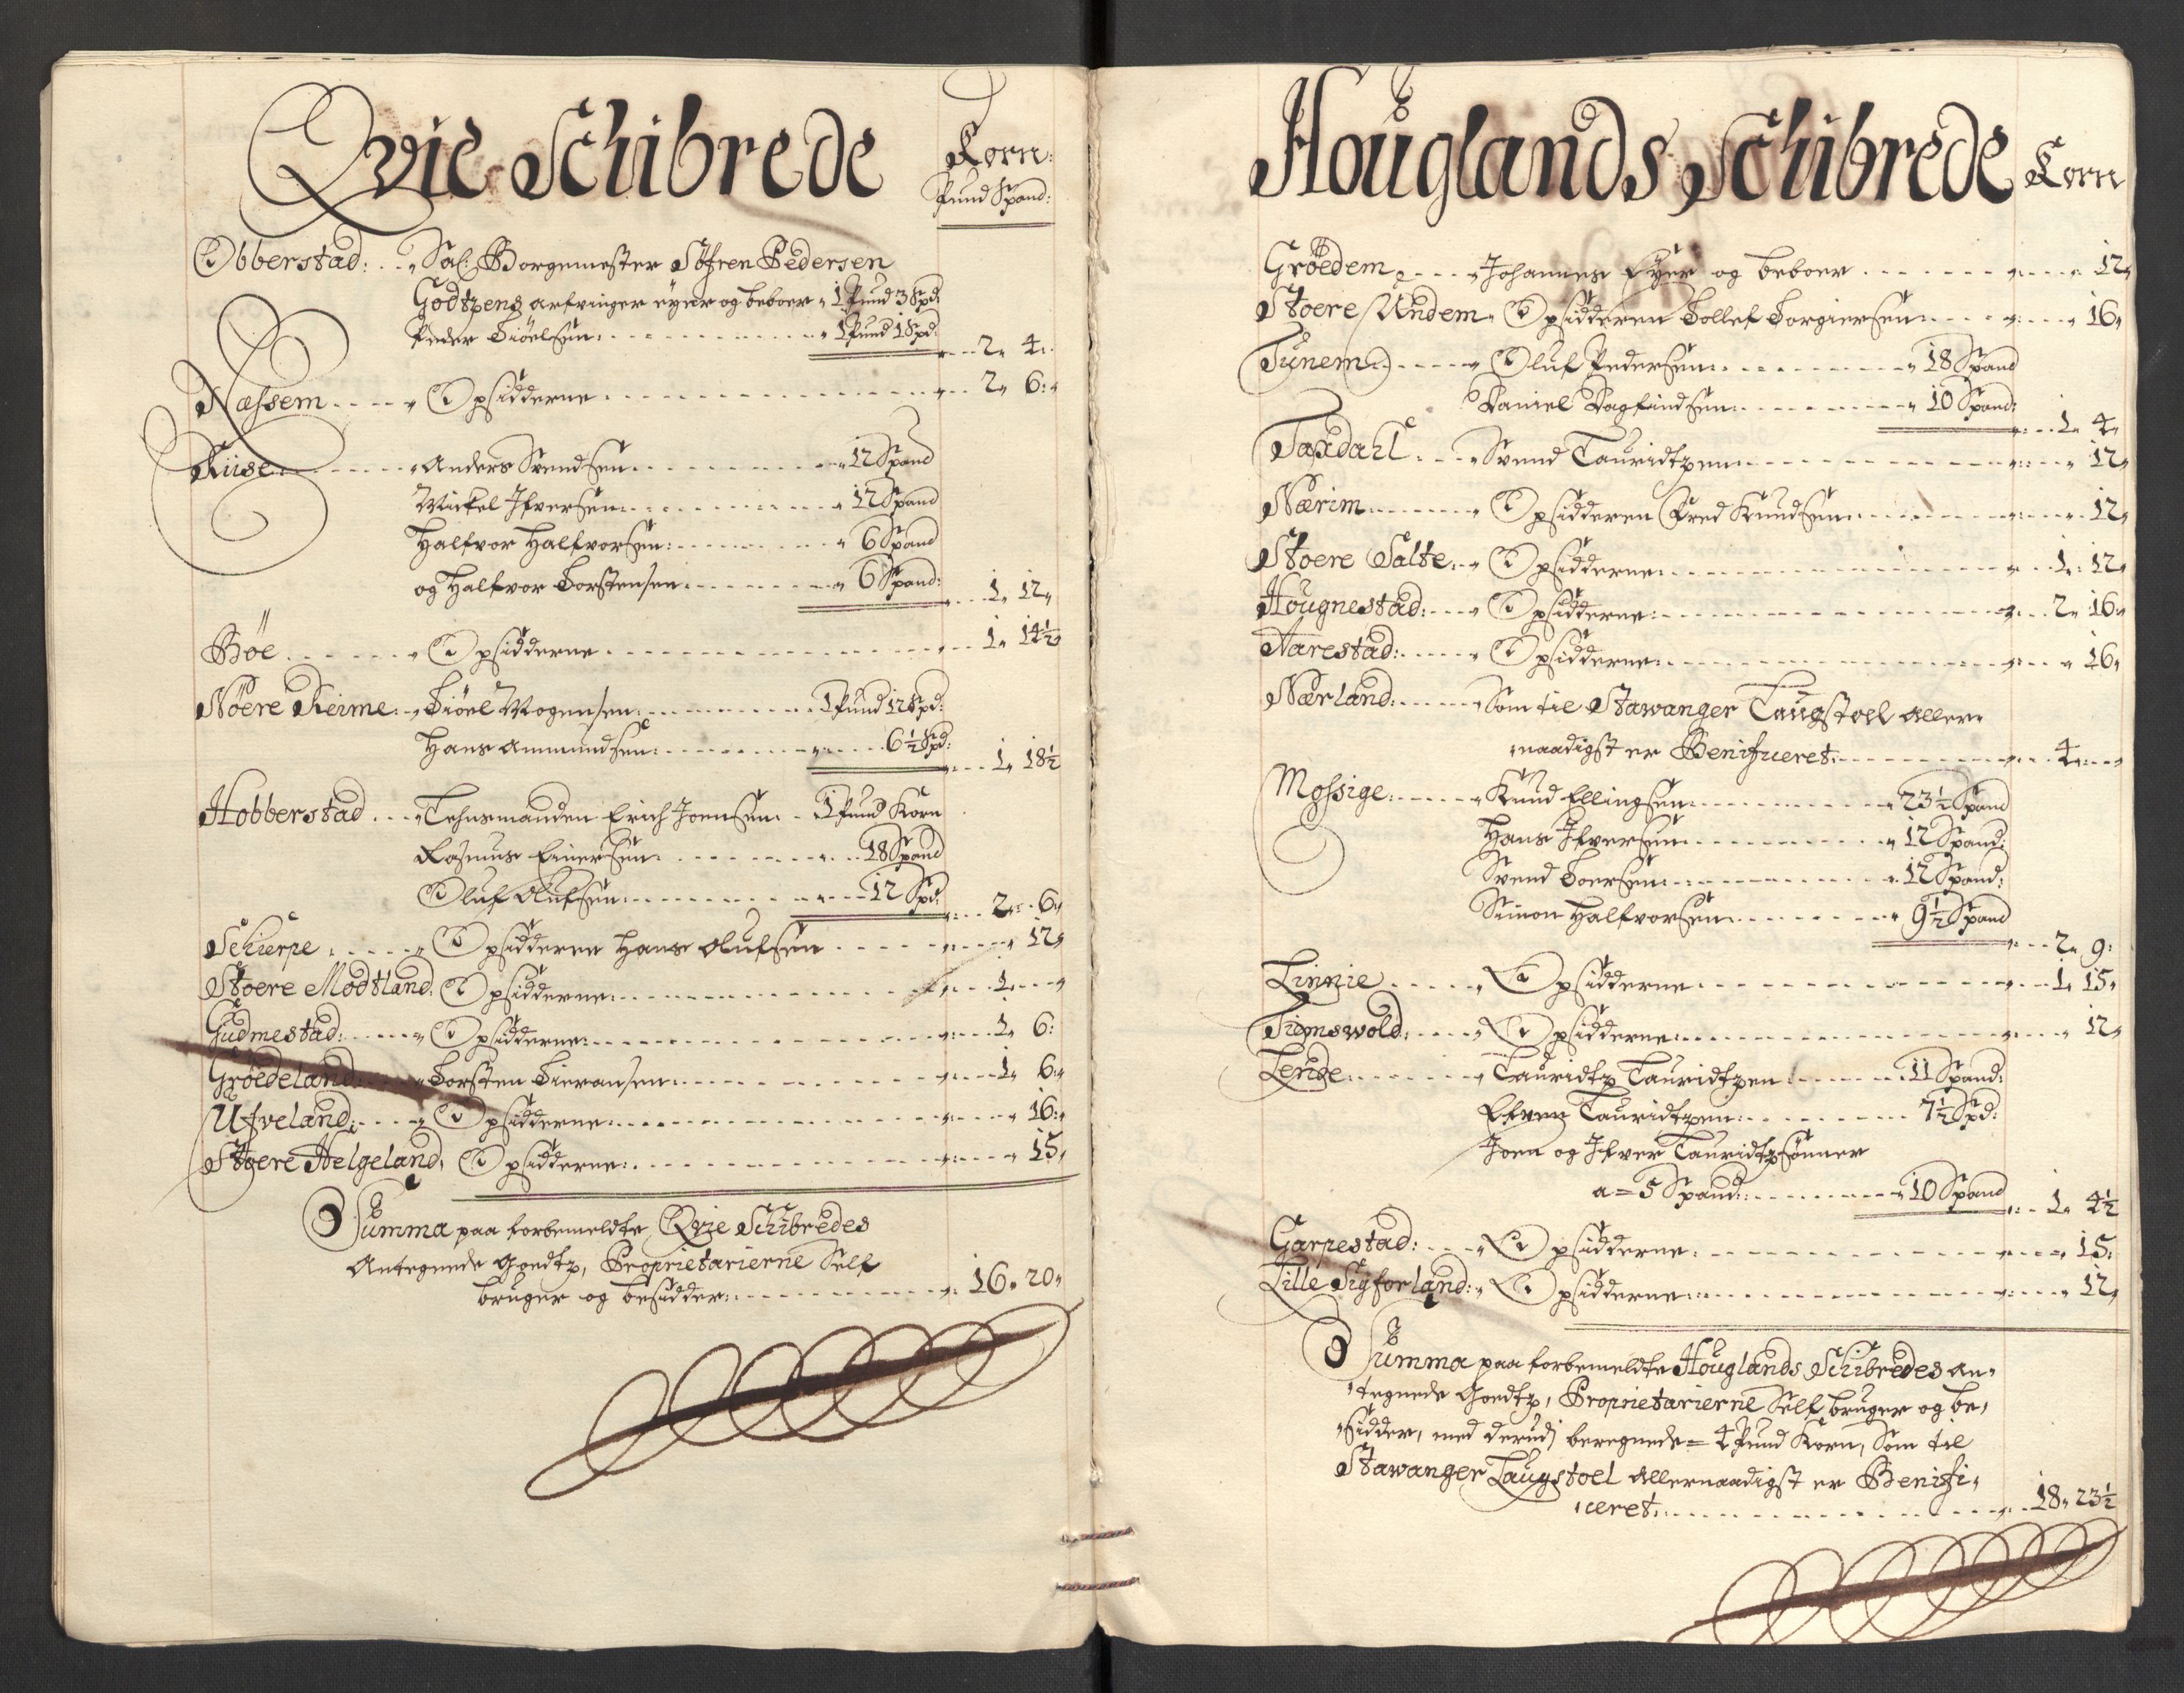 Qvie Schibrede
Korn:
Pund Spand:
Obberstad: Sal: Borgemester Söfren Pedersen
Godtzens arfvinger eyer og beboer 1 Pund 3 Spd:
Peder Siöelsen: 1 Pund 1 Spd:
2 4:
Næssem Opsidderne 2 6:
Riise Anders Svendsen 12 Spand
Mickel Ifversen 12 Spand
Halfvor Halfvorsen: 6 Spand
og Halfvor Torstensen 6 Spand:
1 12
Böe Opsidderne 1 14½
Nöere Reime: Siöel Mogensen 1 Pund 12 Spd:
Hans Ammundsen: 6½ Spd:
1 18½
Hobberstad Lehnsmanden Erich Joensen 1 Pund Korn
Rasmus Einersen 18 Spand
Oluf Olufsen 12 Spd:
2 6
Schierpe: Opsidderen Hans Olufsen 12
Stoere Modtland: Opsidderne 1
Gudmestad: Opsidderne 1 6:
Gröedeland: Torsten Sievansen 1 6
Ufveland: Opsidderne 16
Stoere Helgeland: Opsidderne: 15
Summa paa forbemeldte Qvie Schibredes
Antegnede Goedtz, Proprietarierne Self
bruger og besidder: 16 20
Houglands Schibrede
Korn
Gröedem Johannes Eyer og beboer 12
Stoere Undem Opsidderen Tollef Torgiersen 16
Tunem: Oluf Pedersen 18 Spand
Daniel Dagfindsen 10 Spand:
1 4
Taxdahl: Svend Lauridtzen 12
Nærim Opsidderen Pred Knudsen 12
Stoere Salte: Opsidderne: 1: 12
Hougnestad: Opsidderne: 2 16
Aarestad: Opsidderne: 16
Nærland: Som til Stawanger Laugstoel Aller-
naadigst er Benificeret: 4
Mossige Knud Ellingsen 23½ Spand
Hans Ifversen 12 Spand:
Svend Toersen 12 Spand:
Simon Halfvorsen 9½ Spand
2 9:
Linnie Opsidderne 1 15
Tiemswold: Opsidderne 12
Lende: Lauridtz Lauridtzen 11 Spand:
Efven Lauridtzen: 7½ Spd:
Joen og Ifver Lauridtzsönner
a = 5 Spand: 10 Spand
1 4½
Garpestad: Opsidderne: 15:
Lille Sigforland: Opsidderne: 12
Summa paa forbemeldte Houglands Schibredes an-
tegnede Goedtz, Proprietarierne Self bruger og be-
sidder, med derudj beregnede = 4 Pund Korn, Som til
Stawanger Laugstoel Allernaadigst er Benifi-
ceret: 18 23½